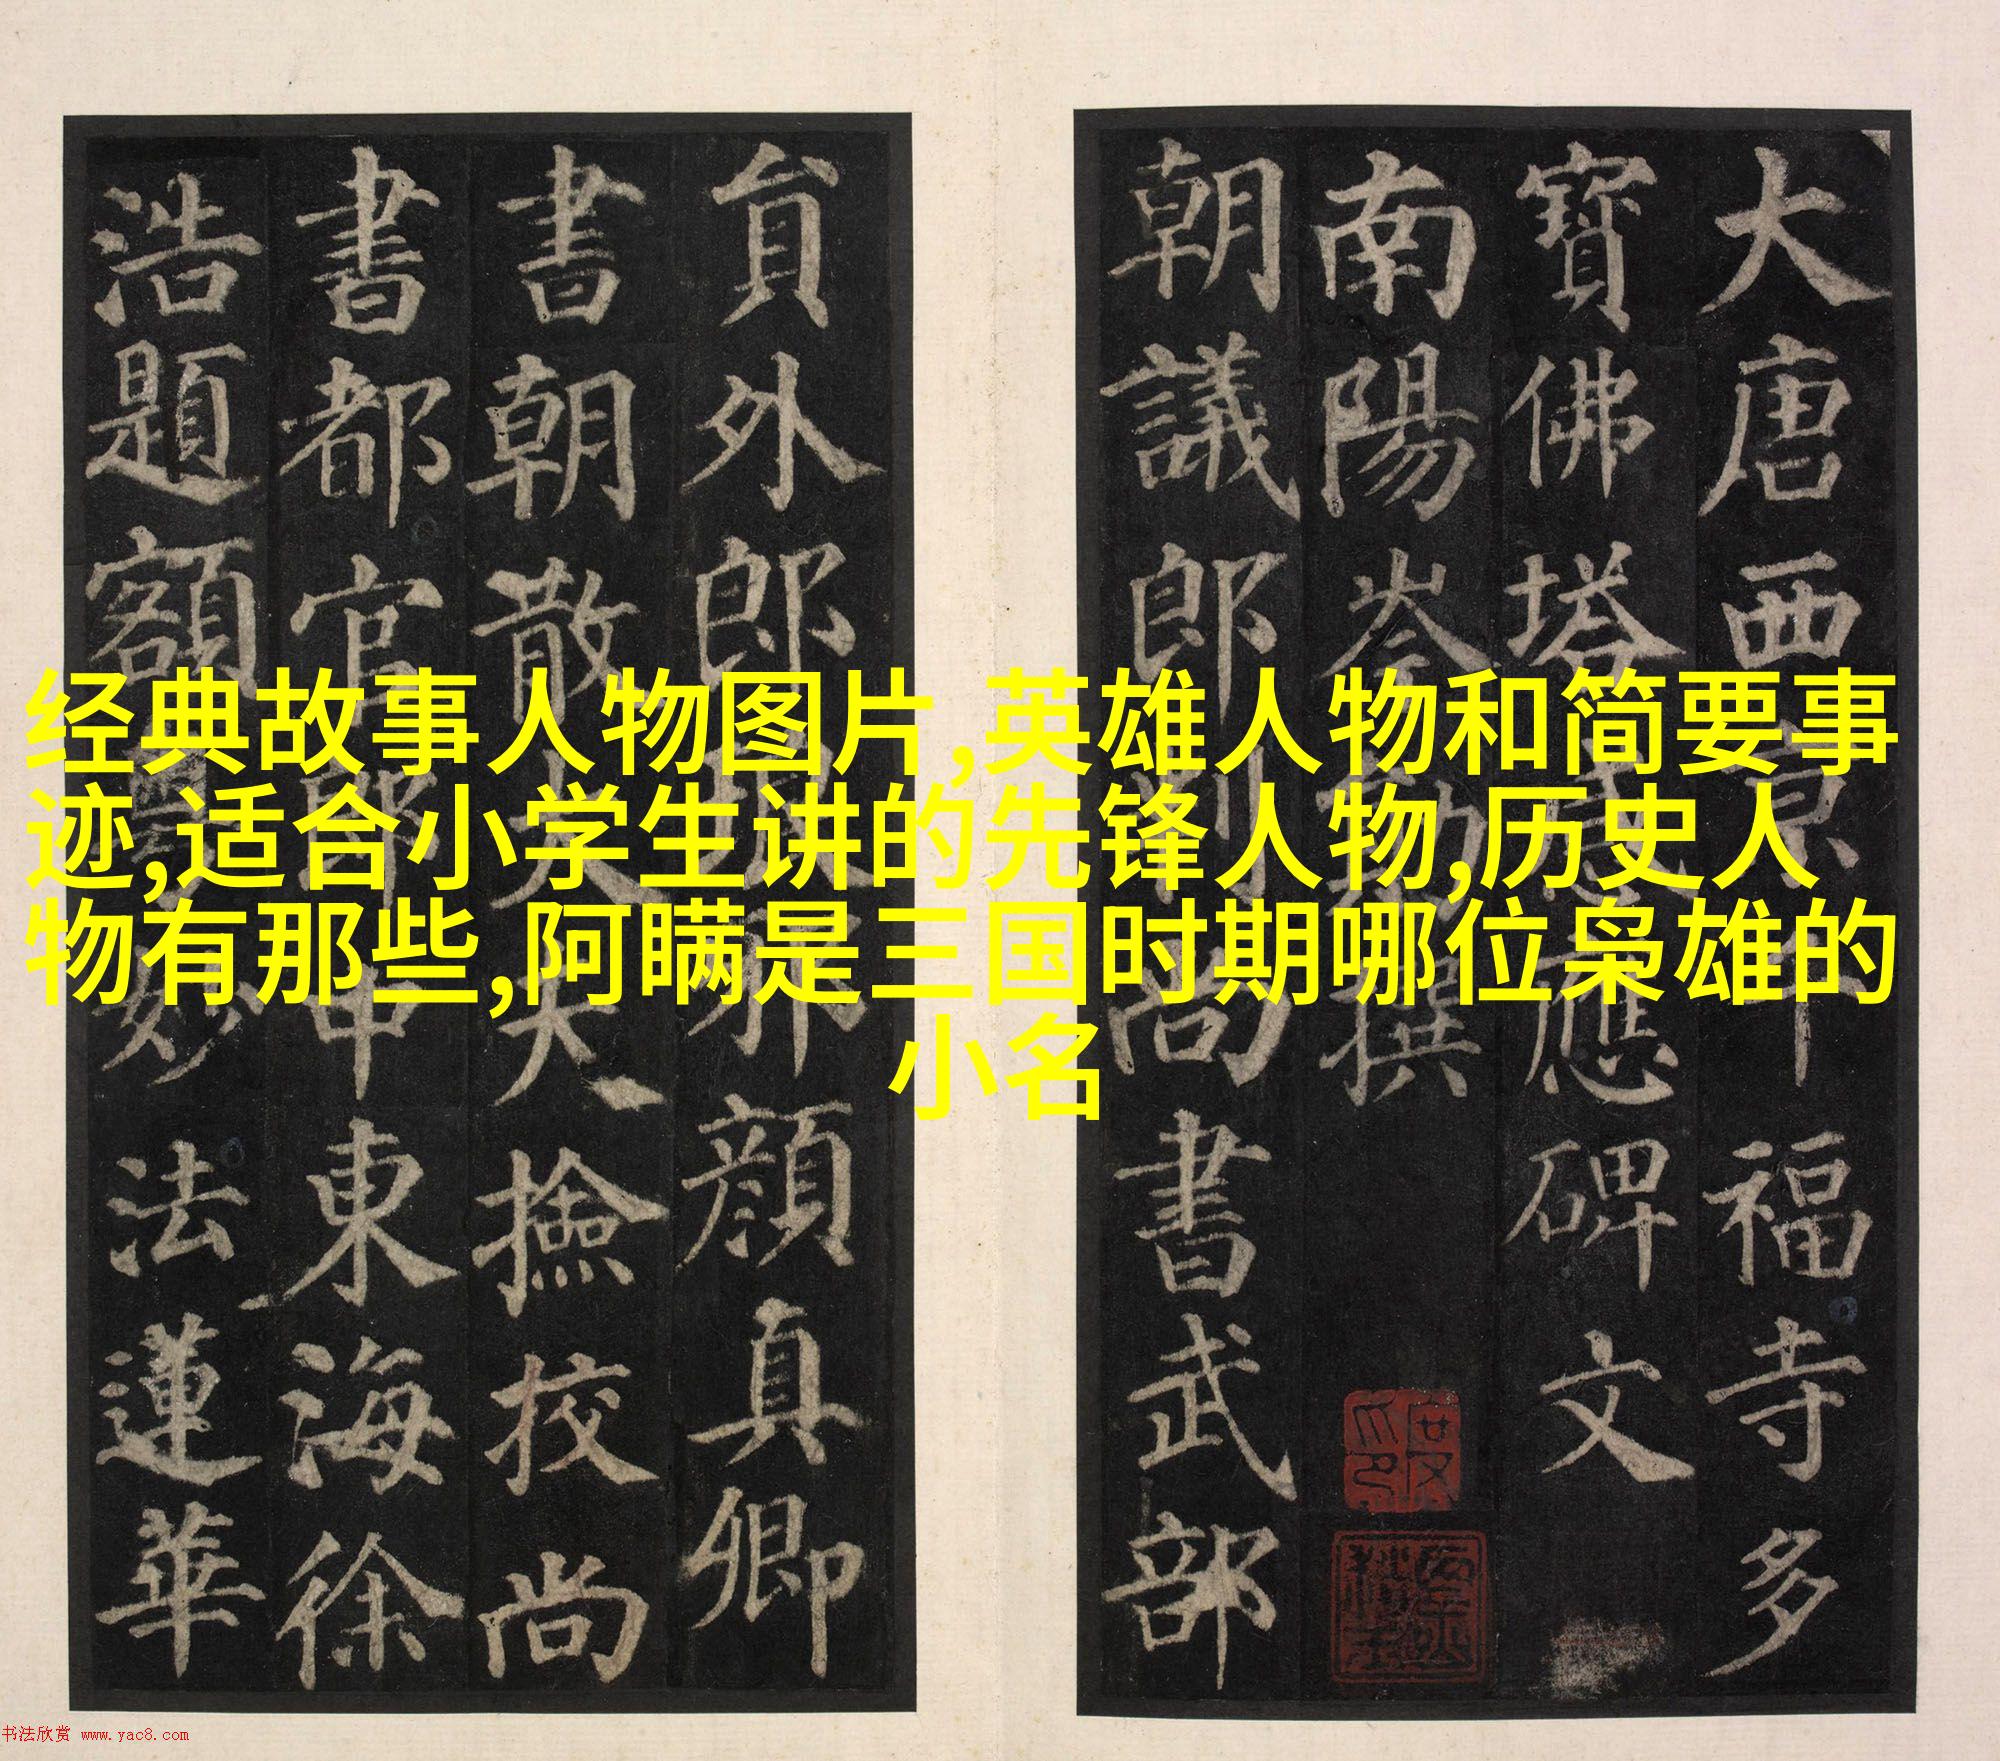 大唐西京千福寺多
寶佛塔感應碑文
南陽岑勛撰
朝議郎判尚書武部
貟外郎琅邪顏真卿
書朝散大夫撿挍尚
書都官郎中東海徐
浩題額
法蓮華
经典故事人物图片,英雄人物和简要事
迹,适合小学生讲的先锋人物,历史人
物有那些,阿瞒是三国时期哪位枭雄的
小名
书法欣赏 www.yac8.com